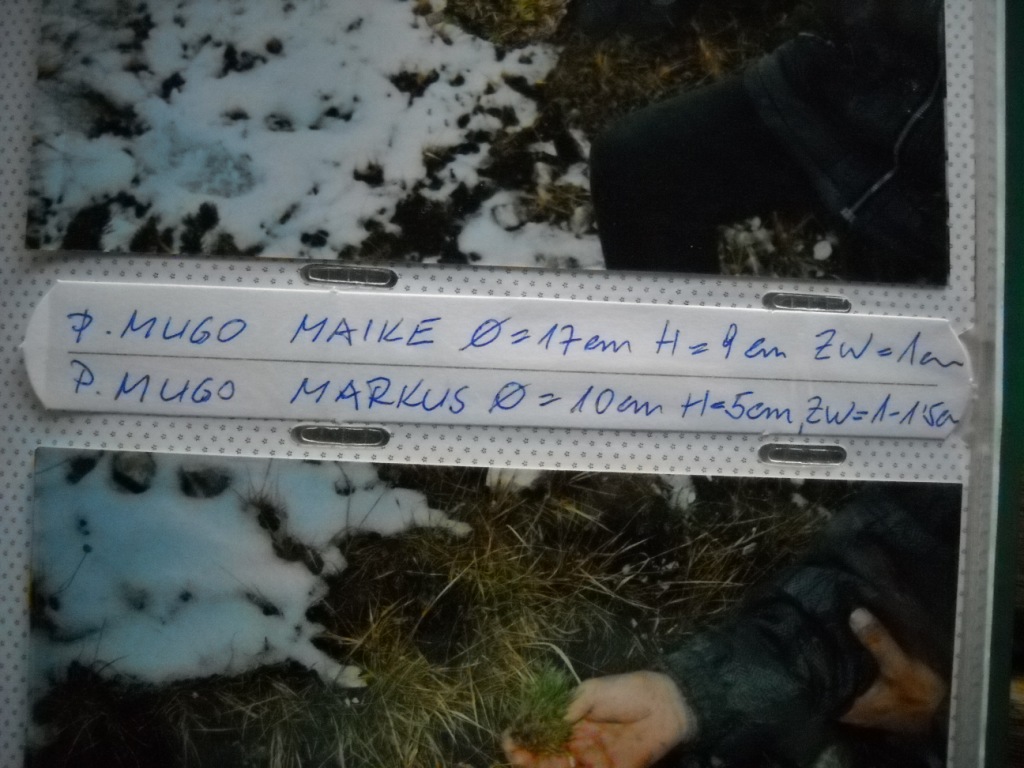 P. MUGO MAIKE Ø = 17cm H = 9cm ZW = 1cm
P. MUGO MARKUS Ø = 10cm H=5cm, ZW=1-1'5c